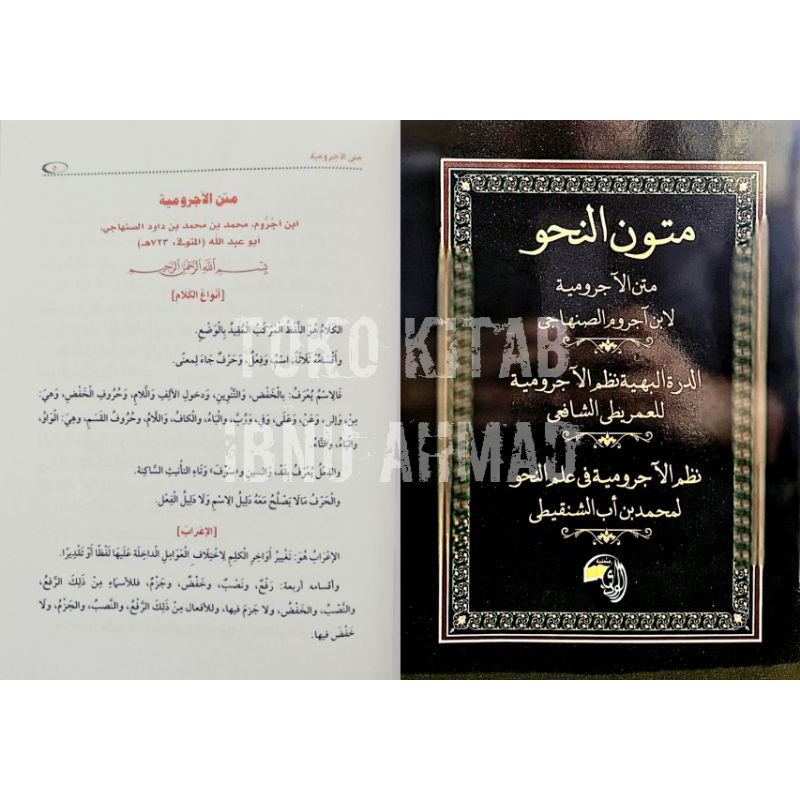 متن الآجرومية
٥
متن الآجرومية
ابن آجُرُّوم، محمد بن محمد بن داود الصنهاجي،
أبو عبد الله (المتوفى: ٧٢٣هـ)
بسم الله الرحمن الرحيم
[أنواعُ الكلام]
الكَلَامُ هُوَ اللَّفْظُ المُرَكَّبُ المُفِيدُ بِالْوَضْعِ.
وأَقْسَامُهُ ثَلَاثَةٌ: اسْمٌ، وَفِعْلٌ، وَحَرْفٌ جَاءَ لِمعنًى.
فَالِاسْمُ يُعْرَفُ: بِالخَفْضِ، وَالتَّنْوِينِ، وَدخولِ الألِفِ وَالَّلامِ، وَحُرُوفِ الْخَفْضِ، وَهِيَ:
مِنْ، وَإِلَى، وَعَنْ، وَعَلَى، وَفِي، وَرُبَّ، وَالْبَاءُ، وَالْكَافُ، وَاللَّامُ، وَحُرُوفُ القَسَمِ، وَهِيَ: الْوَاوُ،
وَالْبَاءُ، وَالتَّاءُ.
وَالفعْلُ يُعْرَفُ بِقَدْ، وَالسين وسَوْفَ، وَتَاءِ التأنيثِ السَّاكِنة.
والْحَرْفُ مَالَا يَصْلُحُ مَعَهُ دَلِيلُ الِاسْمِ وَلَا دَلِيلُ الْفِعْلِ.
[الإعْرَابُ]
الإعْرَابُ هُوَ: تَغْيِيرُ أَوَاخِرِ الْكَلِمِ لِاخْتِلَافِ الْعَوَامِلِ الدَاخِلَةِ عَلَيْهَا لَفْظًا أَوْ تَقْدِيرًا.
وأقسامه أربعة: رَفْعٌ، ونَصْبٌ، وَخَفْضٌ، وَجَزْمٌ، فللأسماءِ مِنْ ذَلِكَ الرَّفْعُ،
وَالنَّصْبُ، وَالْخَفْضُ، وَلَا جَزمَ فيها، وللأفعال مِنْ ذَلِكَ الرَّفْعُ، والنَّصْبُ، والجَزْمُ، ولَا
خَفْضَ فيها.
متون النحو
متن الآجرومية
لابن آجروم الصنهاجي
الدرة البهية نظم الآجرومية
للعمريطي الشافعي
نظم الآجرومية في علم النحو
لمحمد بن أب الشنقيطي
TOKO KITAB
IBNU AHMAD